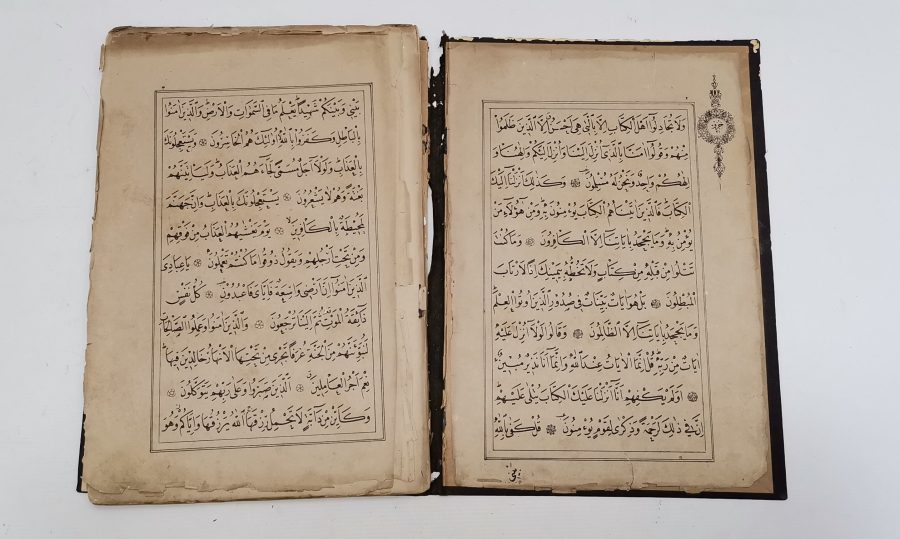 وَلَا تُجَادِلُوا اَهْلَ الْكِتَابِ اِلَّا بِالَّتِي هِيَ اَحْسَنُ اِلَّا الَّذِينَ ظَلَمُوا
مِنْهُمْ وَقُولُوا اٰمَنَّا بِالَّذِي اُنْزِلَ اِلَيْنَا وَاُنْزِلَ اِلَيْكُمْ وَاِلٰهُنَا وَ
اِلٰهُكُمْ وَاحِدٌ وَنَحْنُ لَهُ مُسْلِمُونَ وَكَذٰلِكَ اَنْزَلْنَا اِلَيْكَ
الْكِتَابَ فَالَّذِينَ اٰتَيْنَاهُمُ الْكِتَابَ يُؤْمِنُونَ بِهِ وَمِنْ هٰؤُلَاءِ مَنْ
يُؤْمِنُ بِهِ وَمَا يَجْحَدُ بِاٰيَاتِنَا اِلَّا الْكَافِرُونَ وَمَا كُنْتَ
تَتْلُوا مِنْ قَبْلِهِ مِنْ كِتَابٍ وَلَا تَخُطُّهُ بِيَمِينِكَ اِذًا لَارْتَابَ
الْمُبْطِلُونَ بَلْ هُوَ اٰيَاتٌ بَيِّنَاتٌ فِي صُدُورِ الَّذِينَ اُوتُوا الْعِلْمَ
وَمَا يَجْحَدُ بِاٰيَاتِنَا اِلَّا الظَّالِمُونَ وَقَالُوا لَوْلَا اُنْزِلَ عَلَيْهِ
اٰيَاتٌ مِنْ رَبِّهِ قُلْ اِنَّمَا الْاٰيَاتُ عِنْدَ اللّٰهِ وَاِنَّمَا اَنَا نَذِيرٌ مُبِينٌ
اَوَلَمْ يَكْفِهِمْ اَنَّا اَنْزَلْنَا عَلَيْكَ الْكِتَابَ يُتْلٰى عَلَيْهِمْ
اِنَّ فِي ذٰلِكَ لَرَحْمَةً وَذِكْرٰى لِقَوْمٍ يُؤْمِنُونَ قُلْ كَفٰى بِاللّٰهِ
بيني
بَيْنِي وَبَيْنَكُمْ شَهِيدًا يَعْلَمُ مَا فِي السَّمٰوَاتِ وَالْاَرْضِ وَالَّذِينَ اٰمَنُوا
بِالْبَاطِلِ وَكَفَرُوا بِاللّٰهِ اُولٰئِكَ هُمُ الْخَاسِرُونَ وَيَسْتَعْجِلُونَكَ
بِالْعَذَابِ وَلَوْلَا اَجَلٌ مُسَمًّى لَجَاءَهُمُ الْعَذَابُ وَلَيَأْتِيَنَّهُمْ
بَغْتَةً وَهُمْ لَا يَشْعُرُونَ يَسْتَعْجِلُونَكَ بِالْعَذَابِ وَاِنَّ جَهَنَّمَ
لَمُحِيطَةٌ بِالْكَافِرِينَ يَوْمَ يَغْشٰيهُمُ الْعَذَابُ مِنْ فَوْقِهِمْ
وَمِنْ تَحْتِ اَرْجُلِهِمْ وَيَقُولُ ذُوقُوا مَا كُنْتُمْ تَعْمَلُونَ يَا عِبَادِيَ
الَّذِينَ اٰمَنُوا اِنَّ اَرْضِي وَاسِعَةٌ فَاِيَّايَ فَاعْبُدُونِ كُلُّ نَفْسٍ
ذَائِقَةُ الْمَوْتِ ثُمَّ اِلَيْنَا تُرْجَعُونَ وَالَّذِينَ اٰمَنُوا وَعَمِلُوا الصَّالِحَاتِ
لَنُبَوِّئَنَّهُمْ مِنَ الْجَنَّةِ غُرَفًا تَجْرِي مِنْ تَحْتِهَا الْاَنْهَارُ خَالِدِينَ فِيهَا
نِعْمَ اَجْرُ الْعَامِلِينَ اَلَّذِينَ صَبَرُوا وَعَلٰى رَبِّهِمْ يَتَوَكَّلُونَ
وَكَاَيِّنْ مِنْ دَابَّةٍ لَا تَحْمِلُ رِزْقَهَا اَللّٰهُ يَرْزُقُهَا وَاِيَّاكُمْ وَهُوَ